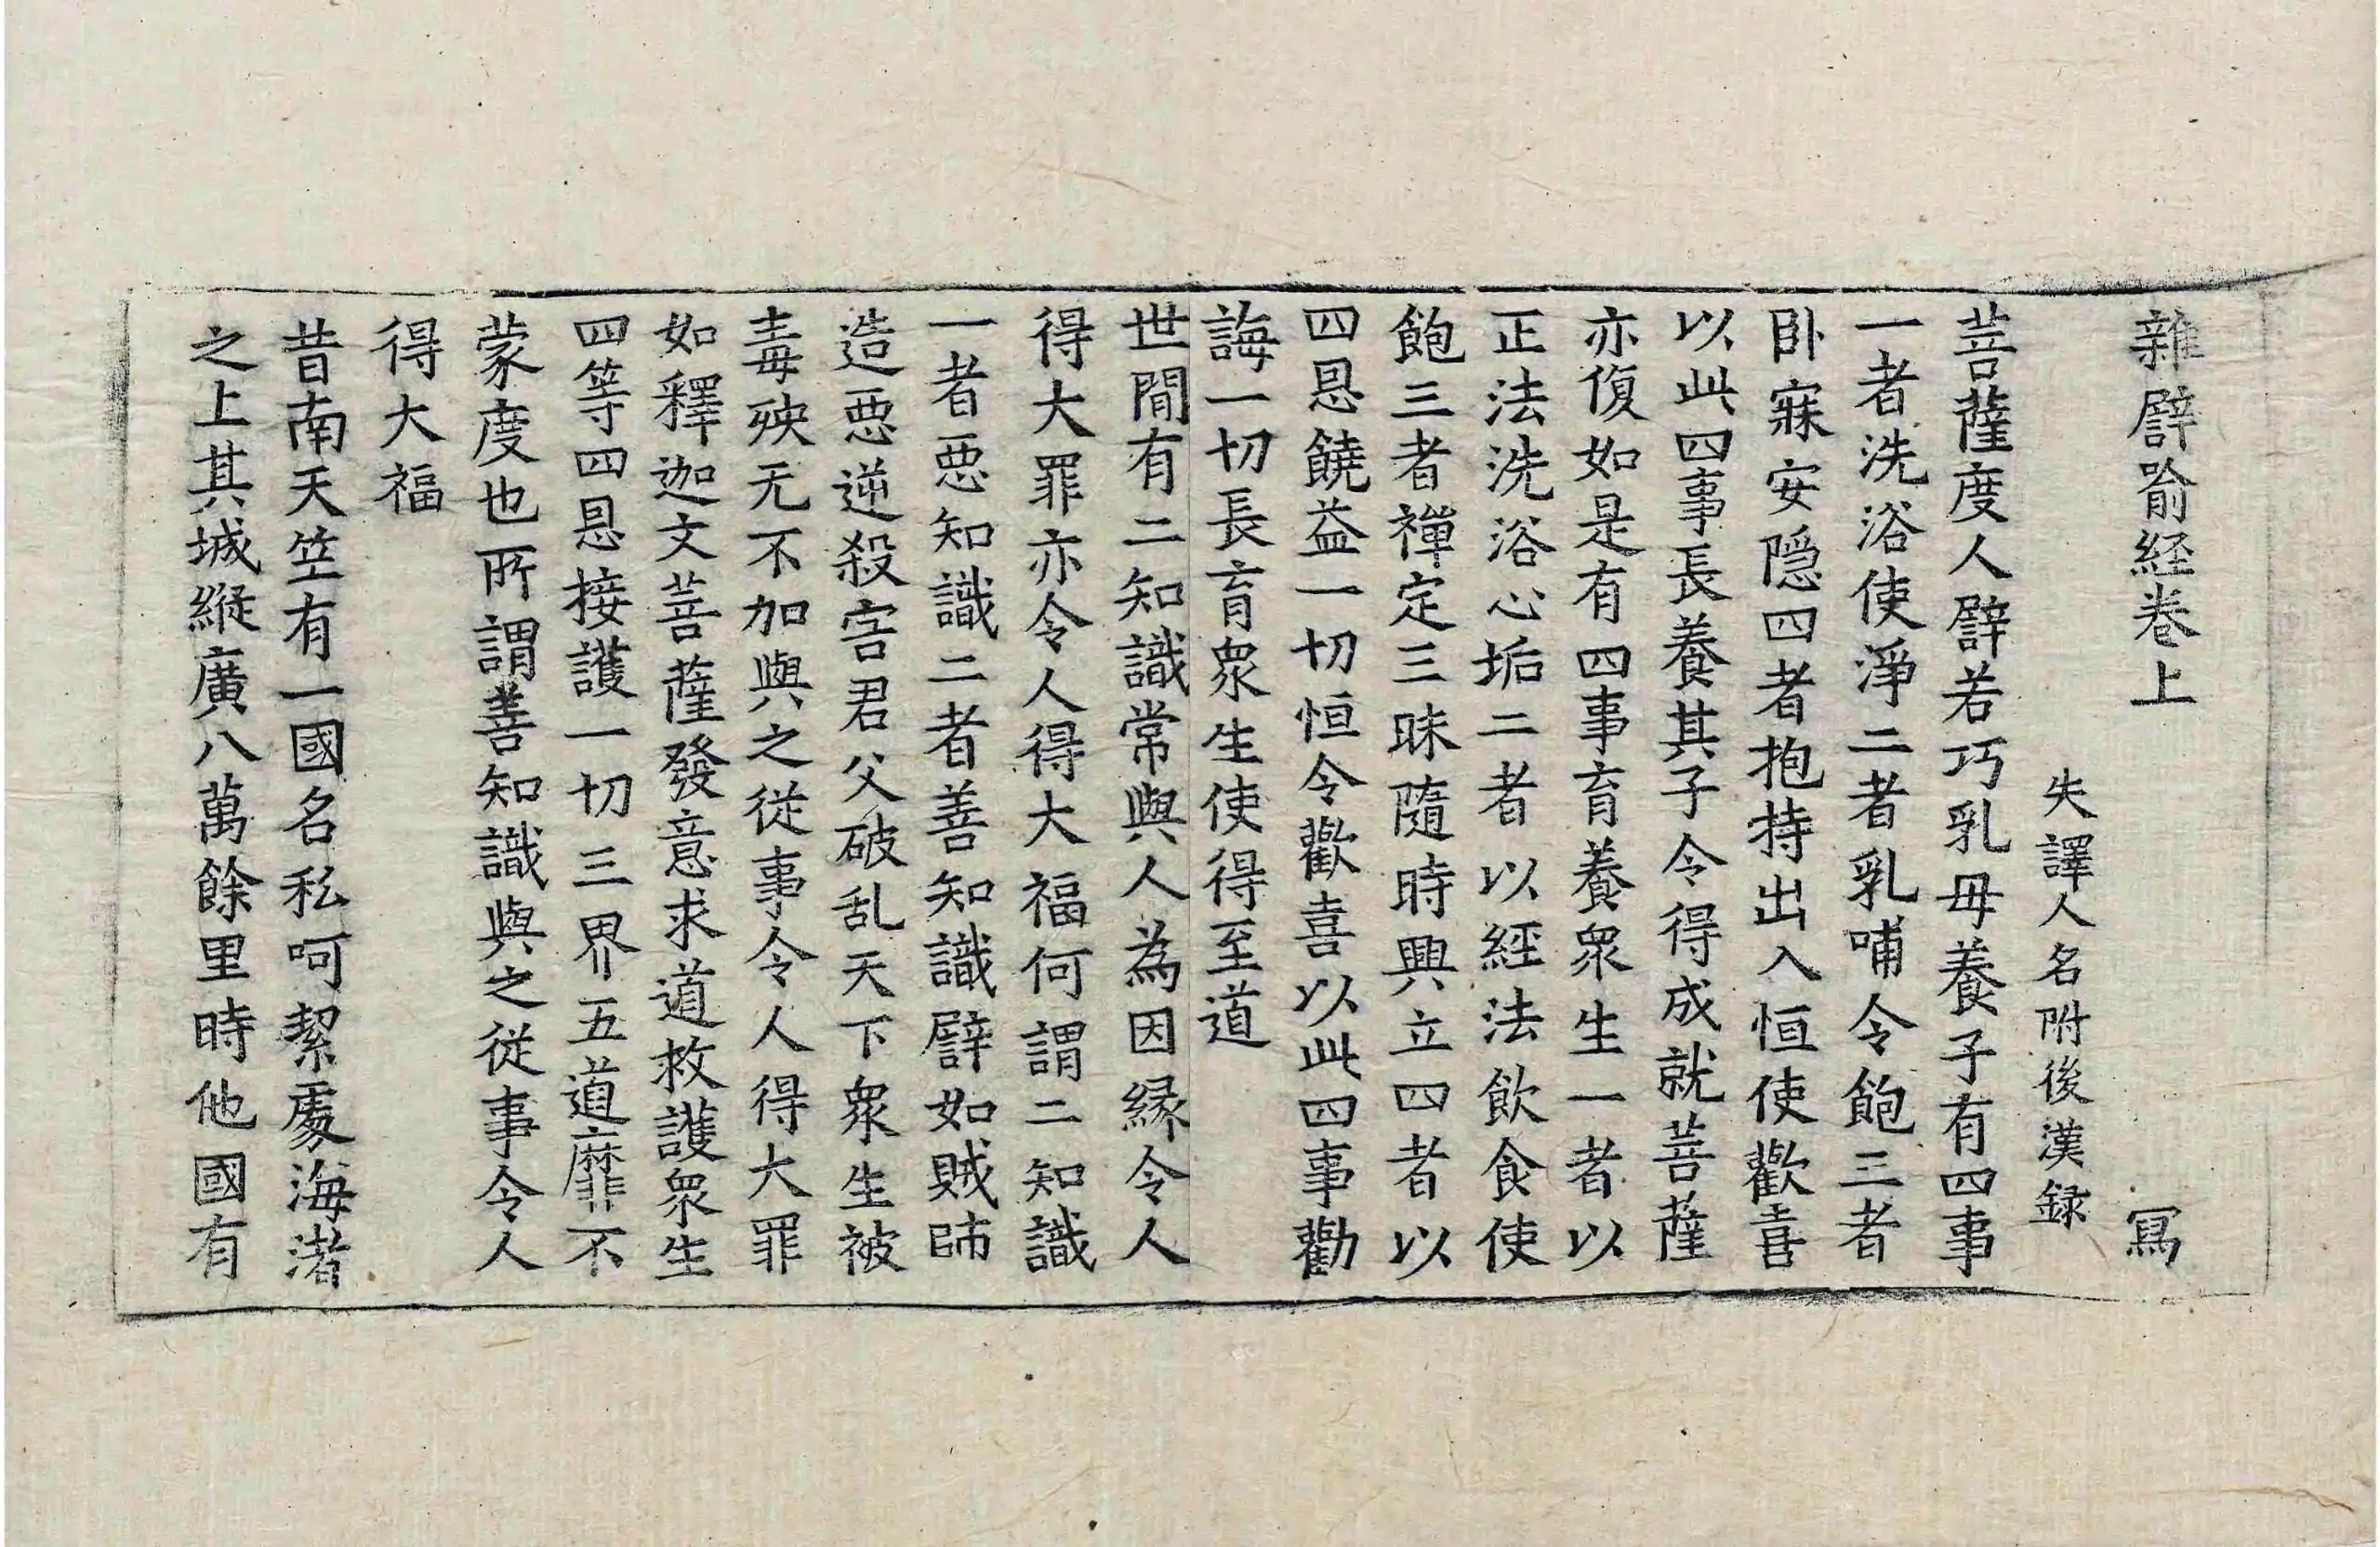 雜譬喻経卷上 冩
失譯人名附後漢録
菩薩度人譬若巧乳母養子有四事
一者洗浴使淨二者乳哺令飽三者
卧寐安隱四者抱持出入恒使歡喜
以此四事長養其子令得成就菩薩
亦復如是有四事育養衆生一者以
正法洗浴心垢二者以經法飲食使
飽三者禪定三昧隨時興立四者以
四恩饒益一切恒令歡喜以此四事勸
誨一切長育衆生使得至道
世間有二知識常與人為因縁令人
得大罪亦令人得大福何謂二知識
一者惡知識二者善知識譬如賊師
造惡逆殺害君父破乱天下衆生被
毒殃无不加與之從事令人得大罪
如釋迦文菩薩發意求道救護衆生
四等四恩接護一切三界五道靡不
蒙度也所謂善知識與之從事令人
得大福
昔南天竺有一國名私呵絜處海渚
之上其城縱廣八萬餘里時他國有